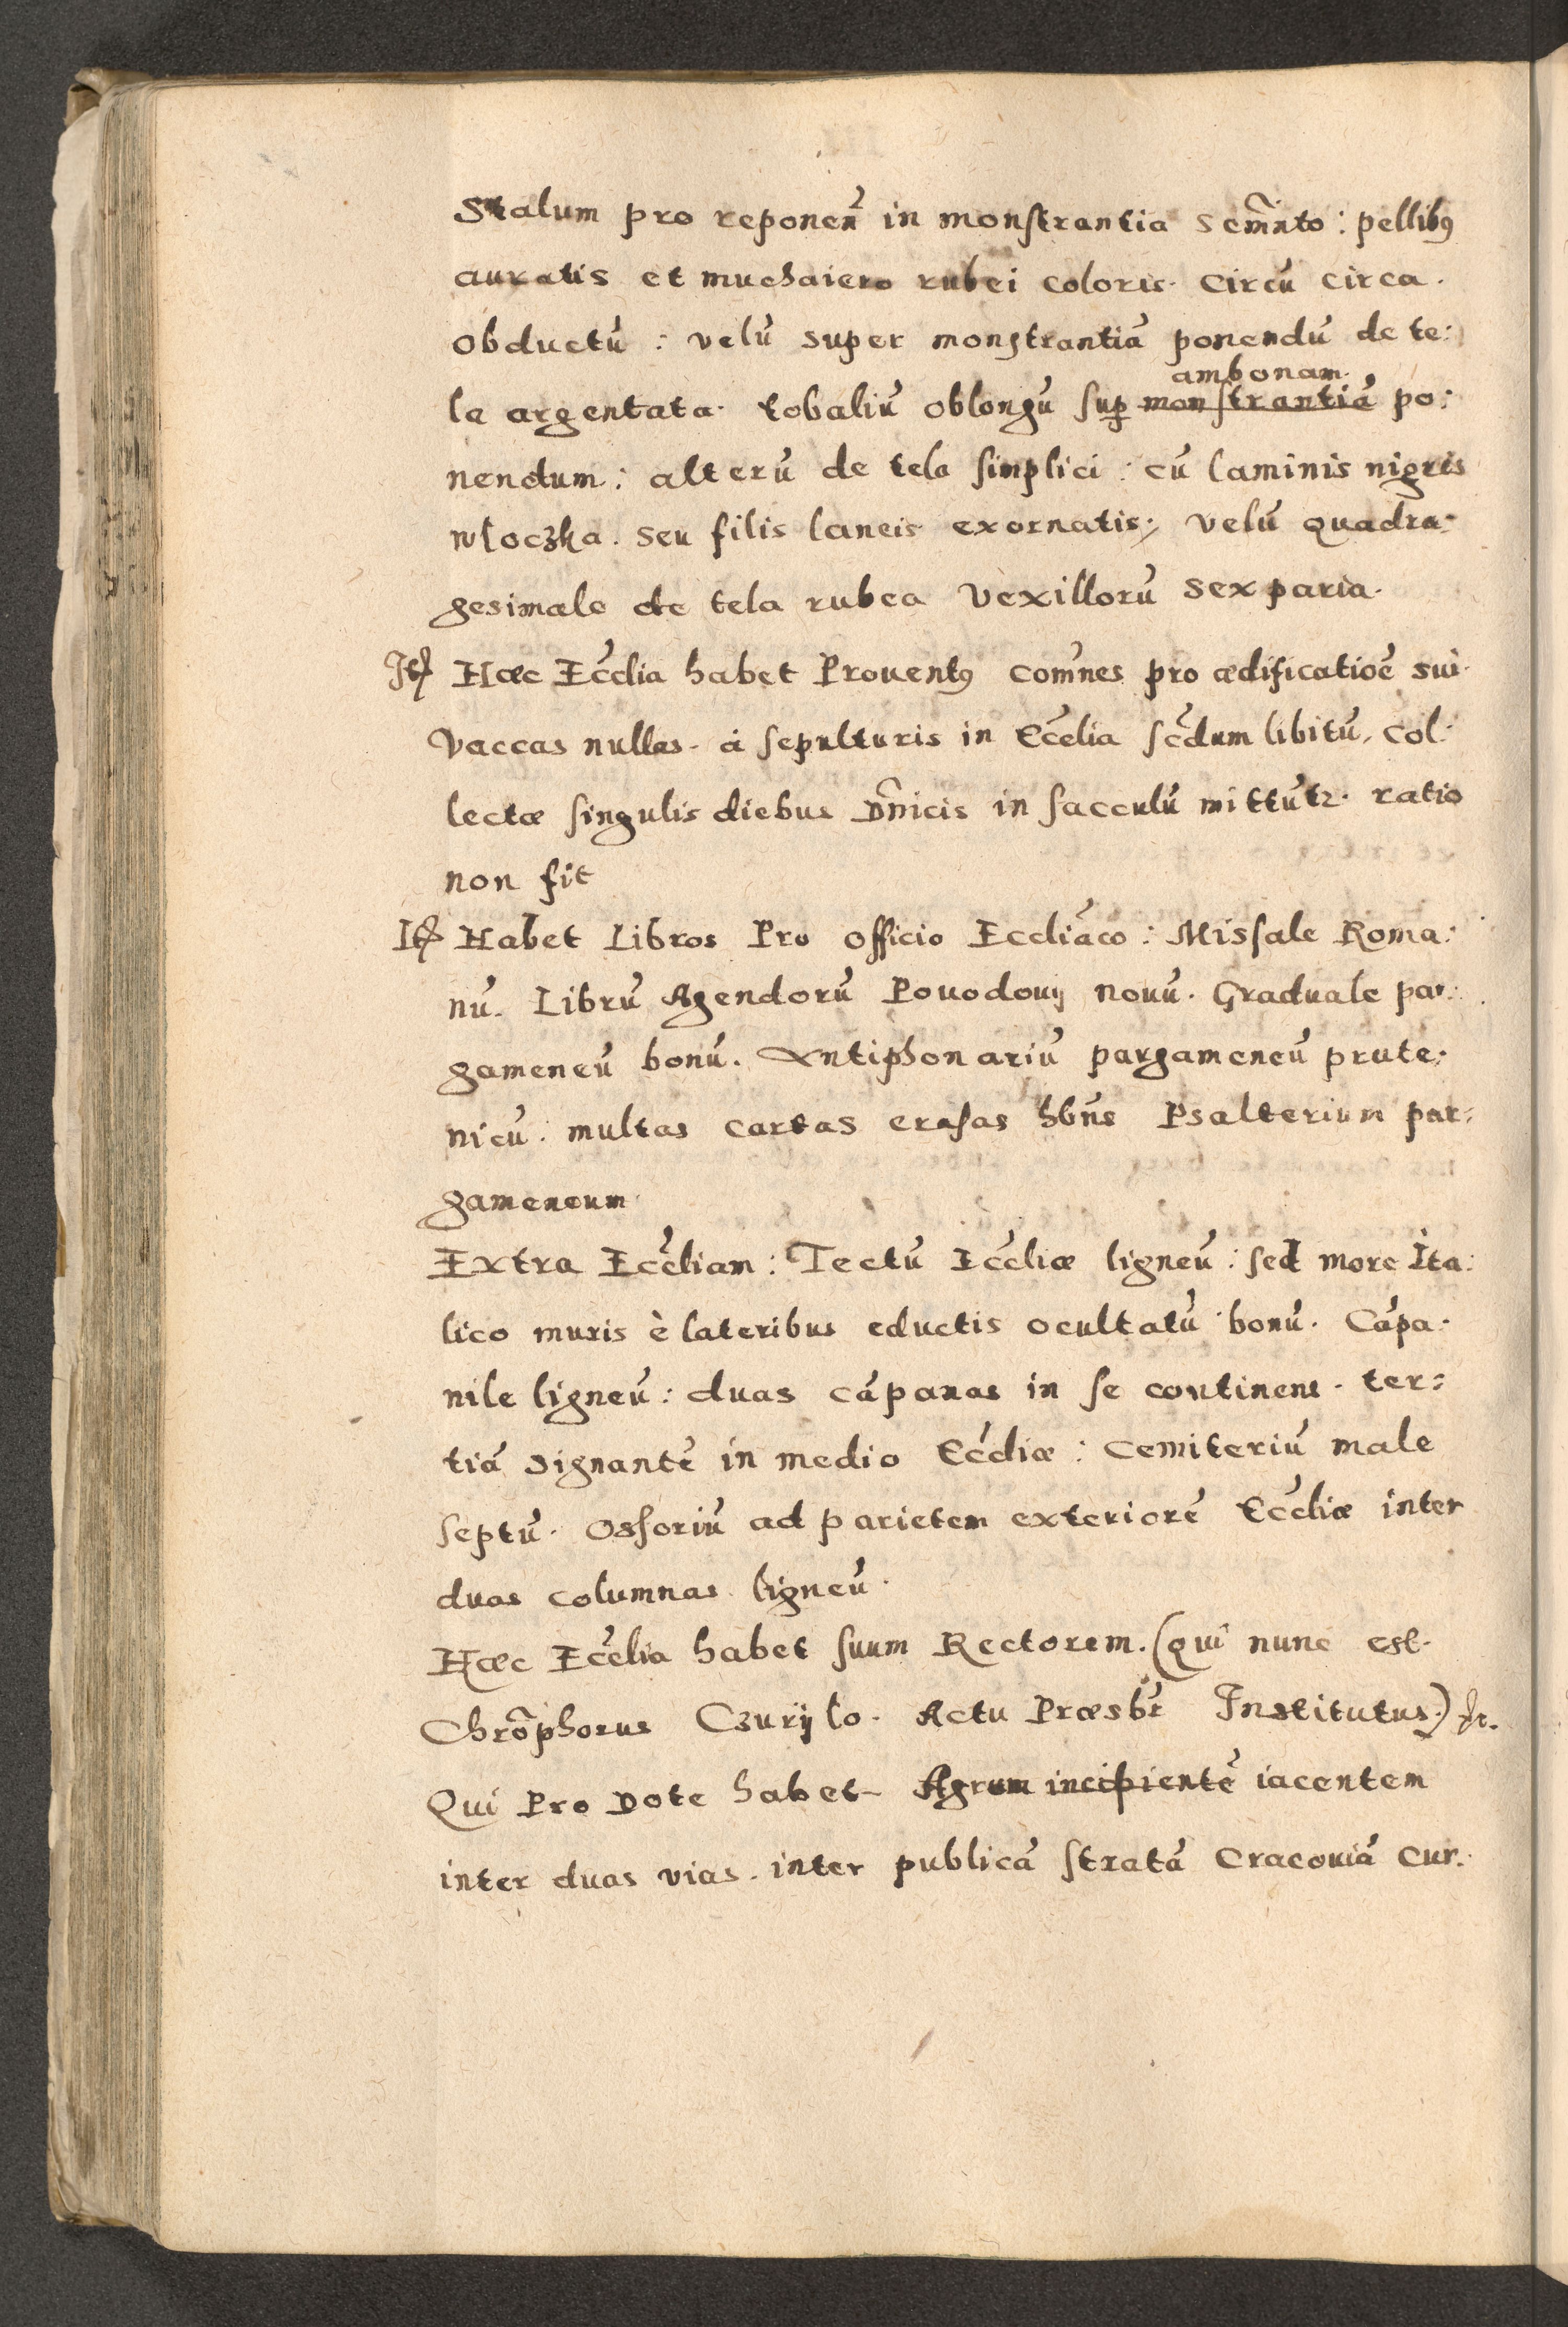 Stalum pro reponen̄ in monſtrantia Sem̃nto: pellibꝰ
auratis et muchaiero rubei coloris. Circū circa.
obductū: velū super monstrantiā ponendū de te:
ambonam.
la argentata. tobaliū oblongū ſuꝑ monſtrantiā po:
nendum: alterū de tela ſimplici: cū laminis nigris
wloczka. seu filis laneis exornatis; velū quadra:
gesimale de tela rubea Vexillorū sex paria.
Itē Hæc Ecc̄lia habet Prouentꝰ com̄nes pro ædificatioē sui.
Vaccas nullas. à ſepulturis in Ecc̄lia ſc̄dum libitū. Col:
lectæ ſingulis diebus Dn̄icis in ſacculū mittūtꝛ. ratio
non fit
Itē Habet Libros Pro officio Eccliāco: Miſsale Roma:
nū. Librū Agendorū Pouodouij nouū. Graduale par:
gameneū bonū. Antiphonariū pargameneū prute:
nicū. multas cartas eraſas hb̄ns Psalterium par:
gameneum
Extra Ecc̄liam: Tectū Ecc̄liæ ligneū: ſed more Ita:
lico muris è lateribus eductis ocultatū bonū. Cāpa:
nile ligneū: duas cāpanas in ſe continens. ter:
tiā signantē in medio Ecc̄liæ: Cemiteriū male
ſeptū. Osſoriū ad parietem exteriorē Ecc̄liæ inter
duas columnas ligneū.
Hæc Ecc̄lia habet ſuum Rectorem. (qui nunc est.
Chrōphorus Czuryło. Actu Præsbr̄ Institutus.)
Qui Pro Dote habet Agrum incipientē iacentem
inter duas vias. inter publicā ſtratā Cracouiā cur: